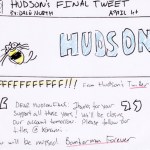 HUDSON'S FINAL TWEET
BY DALE NORTH
APRIL 1st
HUDSON
FFFFFFFFFFF!!! From Hudson's Twitter
Dear Hudson Fans. Thanks for your
support all these years. We'll be closing
our account tomorrow. Please follow our
at Konami
will be missed. Bomberman Forever